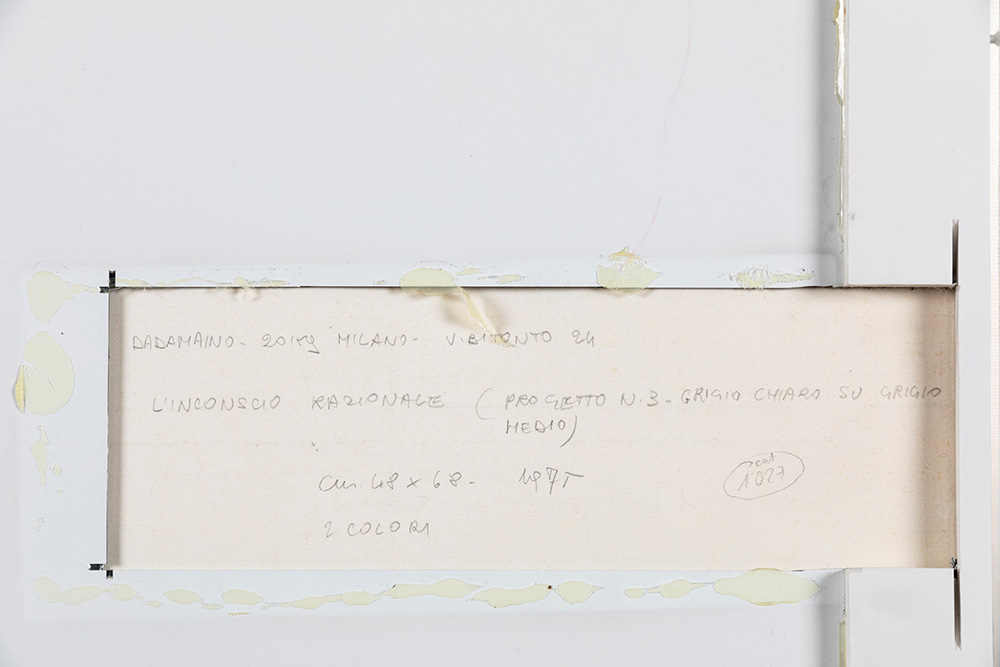 DADAMAINO - 20149 MILANO - V. BITONTO 24
L'INCONSCIO RAZIONALE (PROGETTO N.3 - GRIGIO CHIARO SU GRIGIO
MEDIO)
cm. 48 x 68 - 1975
cat
1027
2 COLORI